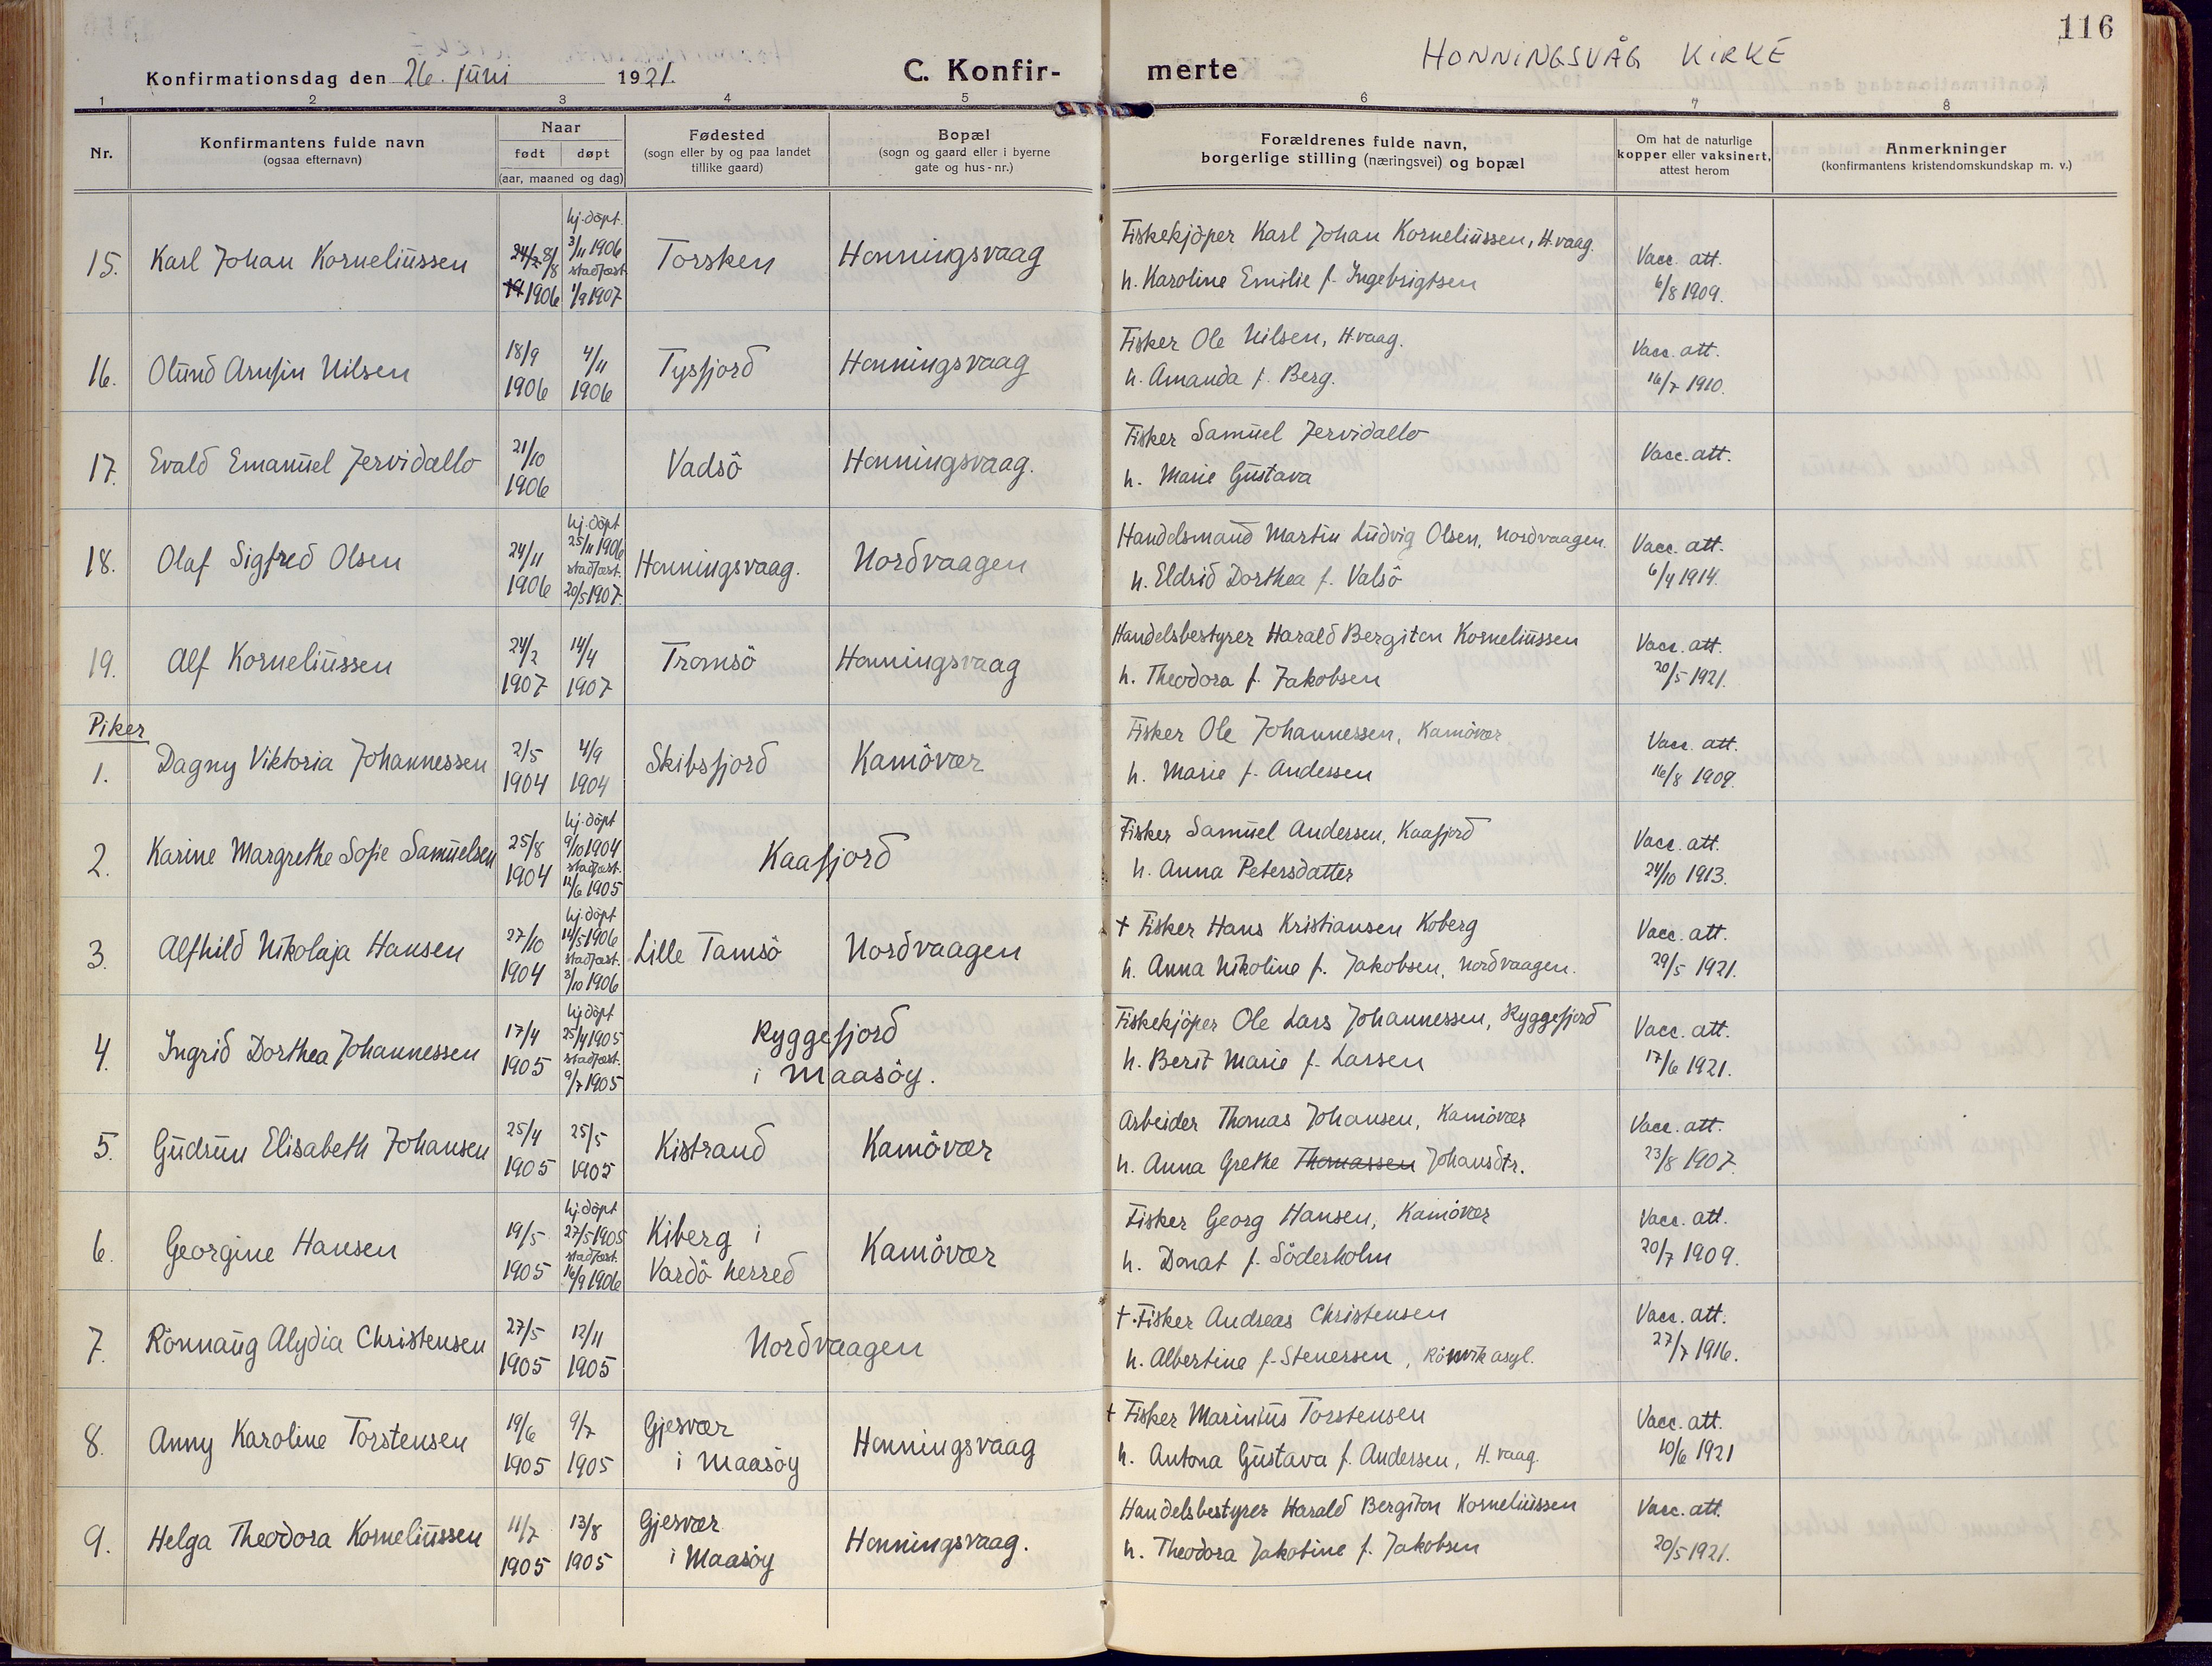 116
HONNINGSVÅG KIRKE
Konfirmationsdag den 26. juni 1921.
C. Konfirmerte
1 2 3 4 5 6 7 8
Nr.
Konfirmantens fulde navn
(ogsaa efternavn)
Naar
født døpt
(aar, maaned og dag)
Fødested
(sogn eller by og paa landet
tillike gaard)
Bopæl
(sogn og gaard eller i byerne
gate og hus-nr.)
Forældrenes fulde navn,
borgerlige stilling (næringsvei) og bopæl
Om hat de naturlige
kopper eller vaksinert,
attest herom
Anmerkninger
(konfirmantens kristendomskundskap m. v.)
15. Karl Johan Korneliussen
24/2 8/8
19 1906
hj. döpt.
3/11 1906
stadfæst.
1/9 1907
Torsken
Honningsvaag
Fiskekjöper Karl Johan Korneliussen, H.vaag.
h. Karoline Emilie f. Ingebrigtsen
Vacc. att.
6/8 1909.
16. Olund Arnfin Nilsen
18/9
1906
4/11
1906
Tysfjord
Honningsvaag
Fisker Ole Nilsen, H.vaag.
h. Amanda f. Berg.
Vacc. att.
16/7 1910.
17. Evald Emanuel Jervidallo
21/10
1906
Vadsö
Honningsvaag.
Fisker Samuel Jervidallo
h. Marie Gustava
Vacc. att.
18. Olaf Sigfred Olsen
24/11
1906
hj. döpt
25/11 1906
stadfæst.
20/5 1907.
Honningsvaag.
Nordvaagen
Handelsmand Martin Ludvig Olsen, Nordvaagen.
h. Eldrid Dorthea f. Valsö
Vacc. att.
6/4 1914.
19. Alf Korneliussen
24/2
1907
14/4
1907
Tromsö
Honningsvaag
Handelsbestyrer Harald Bergiton Korneliussen
h. Theodora f. Jakobsen
Vacc. att.
20/5 1921.
Piker
1. Dagny Viktoria Johannessen
2/5
1904
4/9
1904
Skibsfjord
Kamövær
Fisker Ole Johannessen, Kamövær
h. Marie f. Andessen
Vacc. att.
16/8 1909.
2. Karine Margrethe Sofie Samuelsen
25/8
1904
hj. döpt
9/10 1904
stadfæst.
12/6 1905
Kaafjord
Fisker Samuel Andersen, Kaafjord
h. Anna Petersdatter
Vacc. att.
24/10 1913.
3. Alfhild Nikolaja Hansen
27/10
1904
hj. döpt
14/5 1906
stadfæst.
3/10 1906
Lille Tamsö
Nordvaagen
† Fisker Hans Kristiansen Koberg
h. Anna Nikoline f. Jakobsen, Nordvaagen.
Vacc. att.
29/5 1921.
4. Ingrid Dorthea Johannessen
17/4
1905
hj. döpt
25/4 1905
stadfæst.
9/7 1905
Kyggefjord
i Maasöy.
Fiskekjöper Ole Lars Johannessen, Kyggefjord
h. Berit Marie f. Larsen
Vacc. att.
17/6 1921.
5. Gudrun Elisabeth Johansen
25/4
1905
25/5
1905
Kistrand
Kamövær
Arbeider Thomas Johansen, Kamövær
h. Anna Grethe Thomassen Johansdtr.
Vacc. att.
23/8 1907.
6. Georgine Hansen
19/5
1905
hj. döpt
27/5 1905
stadfæst.
16/9 1906
Kiberg i
Vardö herred
Kamövær
Fisker Georg Hansen, Kamövær
h. Donat f. Söderholm
Vacc. att.
20/7 1909.
7. Rönnaug Alydia Christensen
27/5
1905
12/11
1905
Nordvaagen
† Fisker Andreas Christensen
h. Albertine f. Stenersen, Rönvik asyl.
Vacc. att.
27/7 1916.
8. Anny Karoline Torstensen
19/6
1905
9/7
1905
Gjesvær
i Maasöy
Honningsvaag
† Fisker Marinius Torstensen
h. Antona Gustava f. Andersen, H. vaag.
Vacc. att.
10/6 1921
9. Helga Theodora Korneliussen
11/7
1905
13/8
1905
Gjesvær
i Maasöy
Honningsvaag.
Handelsbestyrer Harald Bergiton Korneliussen
h. Theodora Jakobine f. Jakobsen
Vacc. att.
20/5 1921.